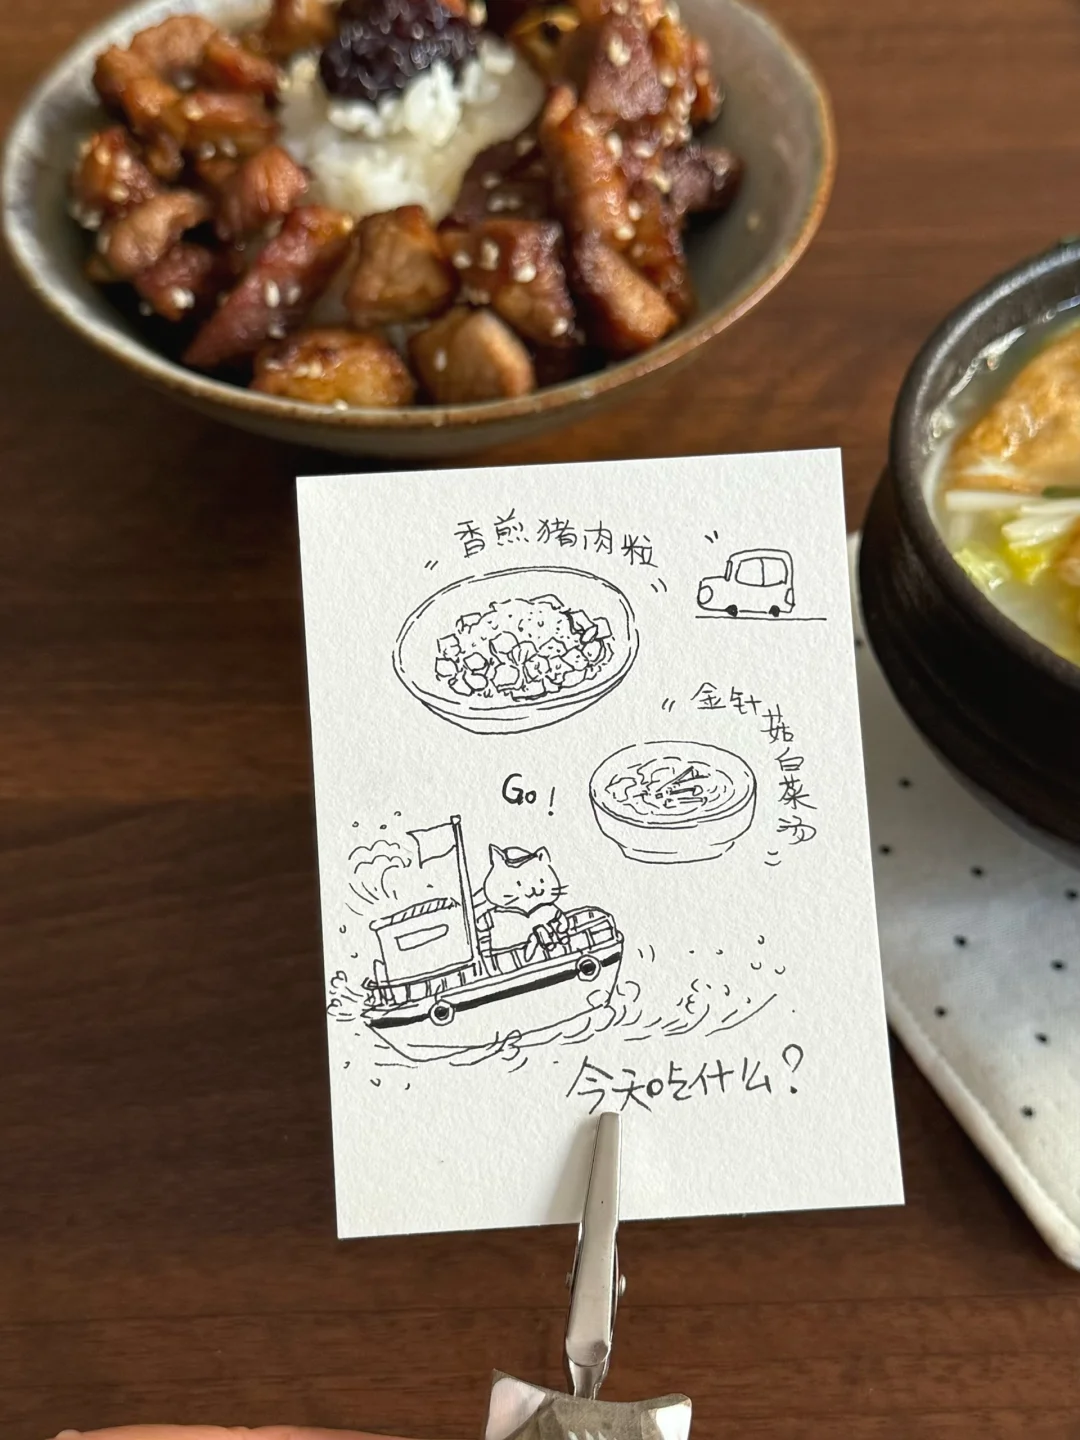 香煎猪肉粒
金针菇白菜汤
Go!
今天吃什么?